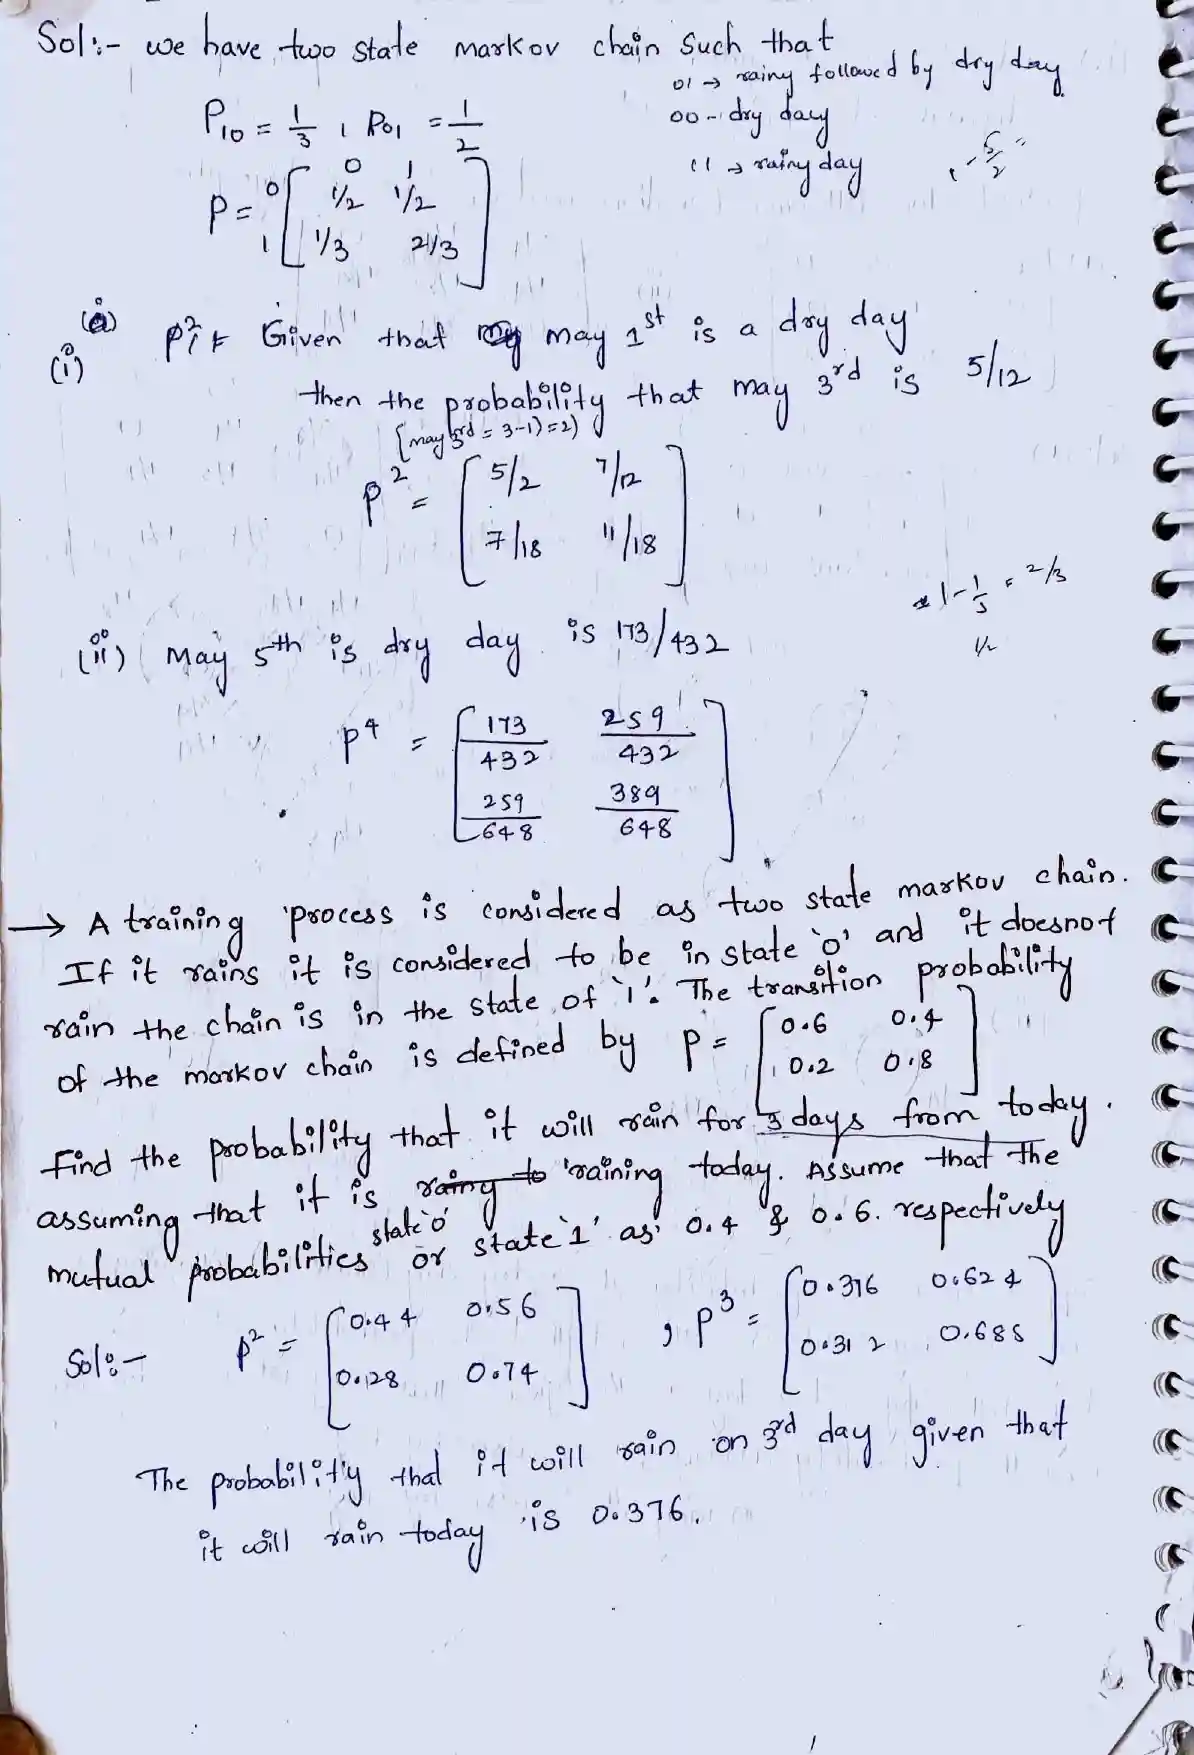 Sol:- we have two state markov chain such that
01 → rainy followed by dry day
P10 = 1/3 , P01 = 1/2
00 - dry day
11 → rainy day
1 - 5/2 =
0 1
P = 0 [ 1/2 1/2
1 1/3 2/3 ]
(i) Given that may 1st is a dry day
then the probability that may 3rd is 5/12
(may 3rd = 3-1) = 2)
P² = [ 5/2 7/12
7/18 11/18 ]
1 - 1/3 = 2/3
1/2
(ii) May 5th is dry day is 173/432
P4 = [ 173/432 259/432
259/648 389/648 ]
→ A training process is considered as two state markov chain.
If it rains it is considered to be in state '0' and it doesnot
rain the chain is in the state of '1'. The transition probability
of the markov chain is defined by P = [ 0.6 0.4
0.2 0.8 ]
Find the probability that it will rain for 3 days from today.
assuming that it is rainy to raining today. Assume that the
mutual probabilities state '0' or state '1' as 0.4 & 0.6. respectively
Sol:- P² = [ 0.44 0.56
0.128 0.74 ]
, P³ = [ 0.376 0.624
0.312 0.688 ]
The probability that it will rain on 3rd day given that
it will rain today is 0.376.